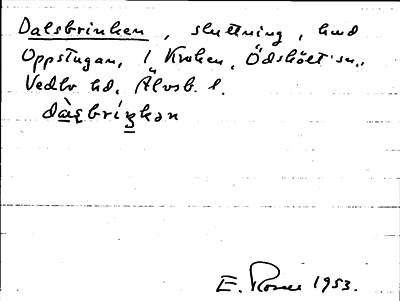 Dalsbrinken, sluttning, hmd
Oppstugan, 1 Kroken, Ödskölt sn.,
Vedbo hd, Älvsb. l.
dàɐsbríŋkən
E. Rosen 1953.